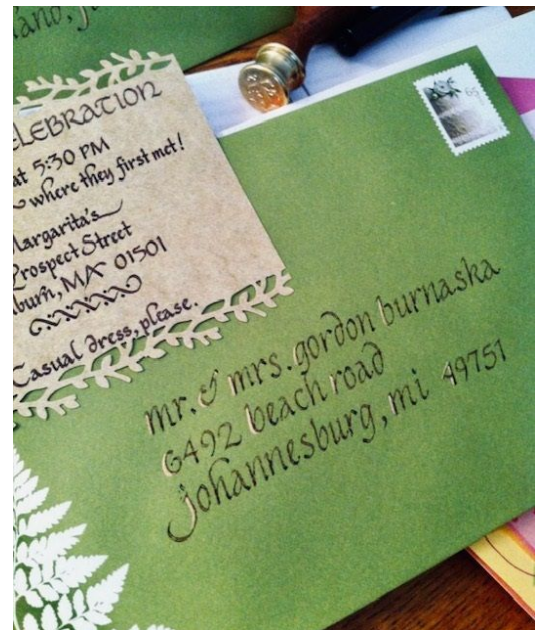 ELEBRATION
at 5:30 PM
where they first met!
Margarita's
Prospect Street
burn, MA 01501
Casual dress, please.
65
mr. & mrs. gordon burnaska
6492 beach road
johannesburg, mi 49751